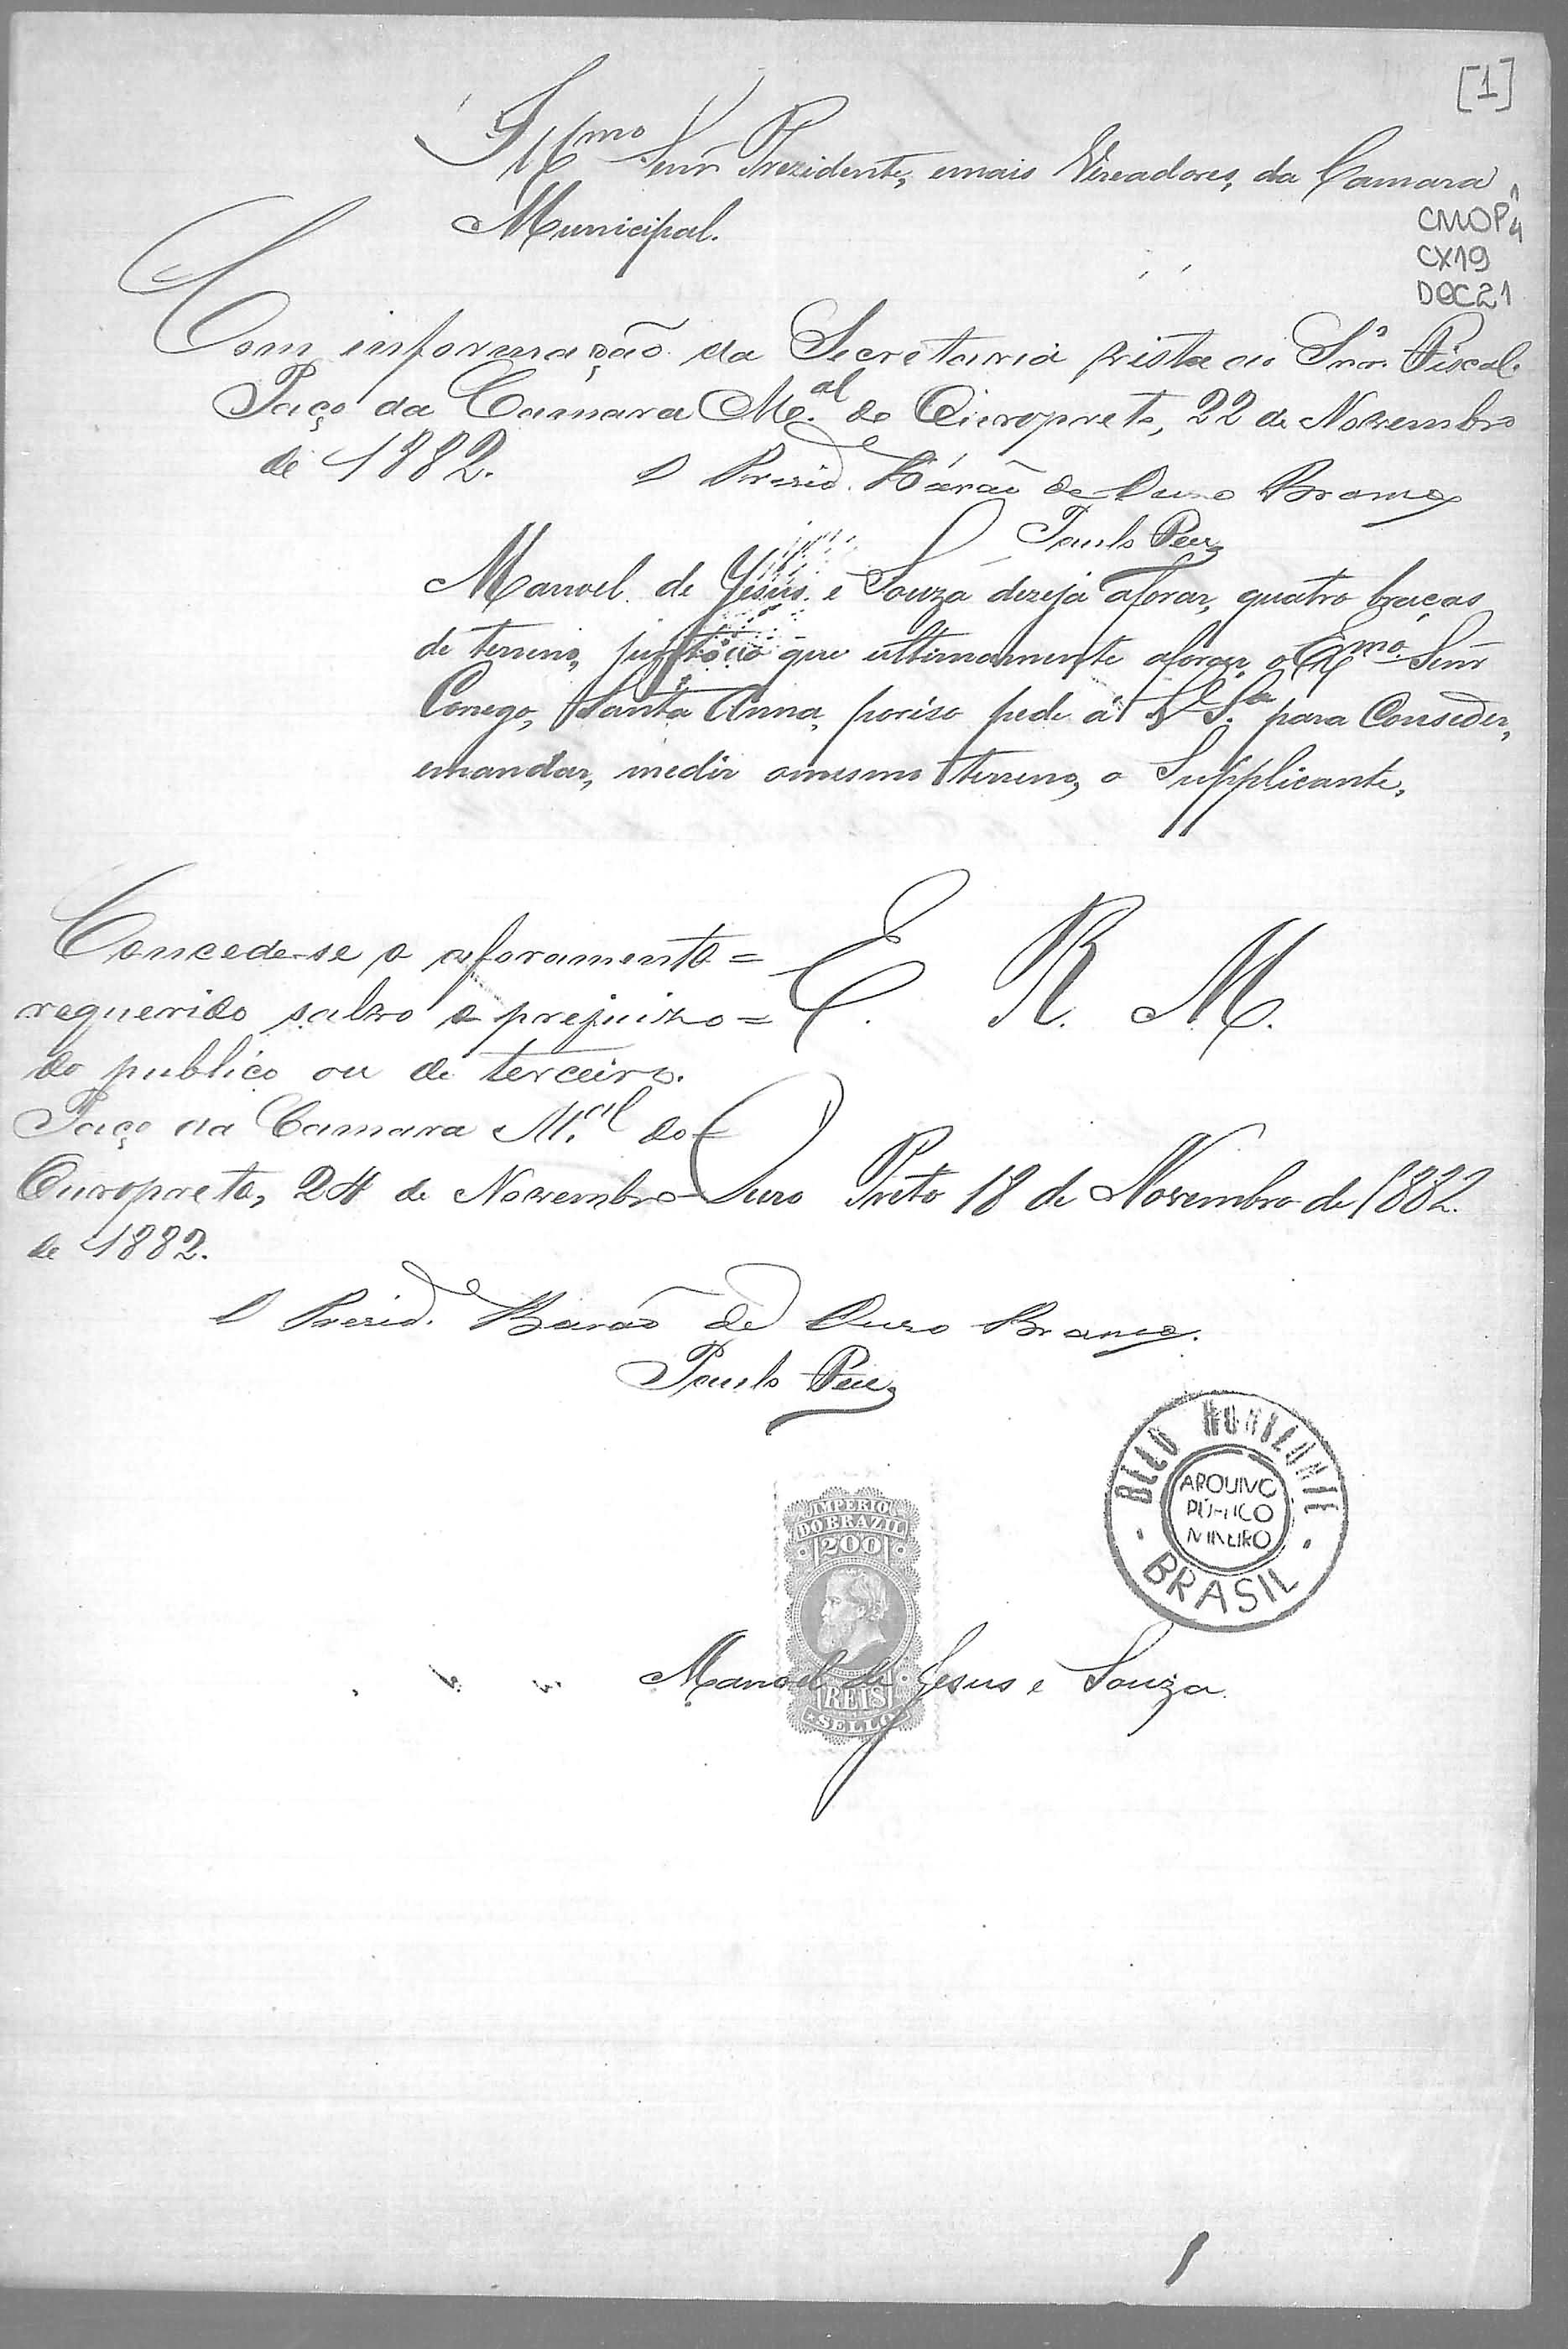 [1]
Illmo Senr Prezidente, emais Vereadores, da Camara
Municipal.
CMOP 1/4
CX19
DOC21
Com informação da Secretaria vista ao Snr. Fiscal.
Paço da Camara M.al do Ouropreto, 22 de Novembro
de 1882.
O Presid. Barão de Ouro Branco
Manoel de Jesus e Souza dezeja aforar, quatro braças
de terreno, junto ao que ultimamente aforou, o Exmo. Senr
Conego, Santa Anna, poriso pede a V. S.a para Conseder,
emandar, medir omesmo terreno, o Supplicante,
E. R. M.
Concede-se o aforamento =
requerido salvo o prejuizo =
do publico ou de terceiro.
Paço da Camara M.al do =
Ouropreto, 24 de Novembro
de 1882.
Ouro Preto 18 de Novembro de 1882.
O Presid. Barão de Ouro Branco.
IMPERIO
DO BRAZIL
200
REIS
SELLO
BELLO HORIZONTE
ARQUIVO
PÚBLICO
MINEIRO
BRASIL
Manoel de Jesus e Souza.
1